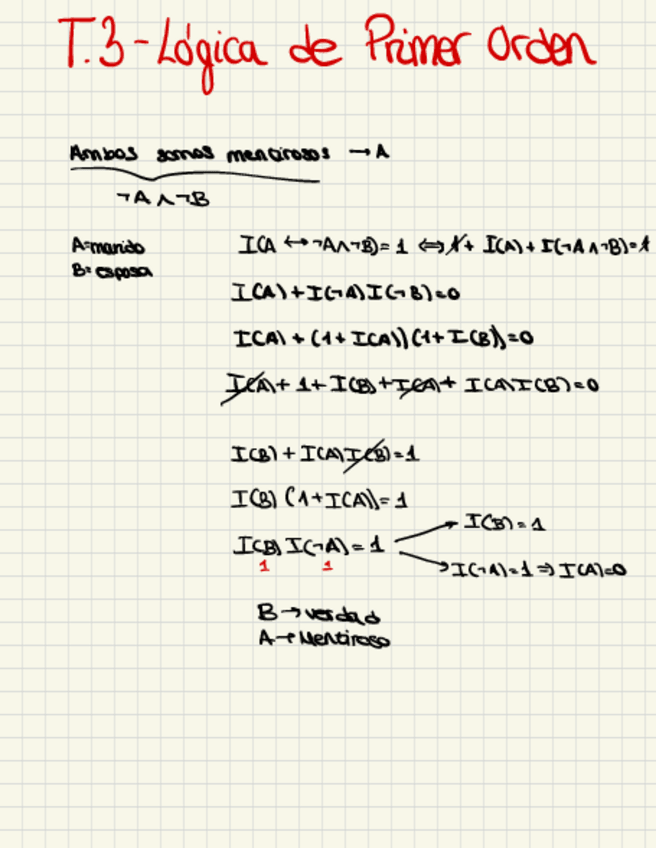 T.3-Lógica de Primer Orden
Ambos somos mentirosos → A
¬A∧¬B
A=marido
B=esposa
I(A ↔ ¬A∧¬B)=1 ⇔ 1+ I(A)+I(¬A∧¬B)=1
I(A)+I(¬A)I(¬B)=0
I(A)+(1+I(A))(1+I(B))=0
I(A)+1+I(B)+I(A)+ I(A)I(B)=0
I(B)+I(A)I(B)=1
I(B)(1+I(A))=1
I(B)I(¬A)=1
1 1
I(B)=1
I(¬A)=1⇒I(A)=0
B→verdad
A→Mentiroso